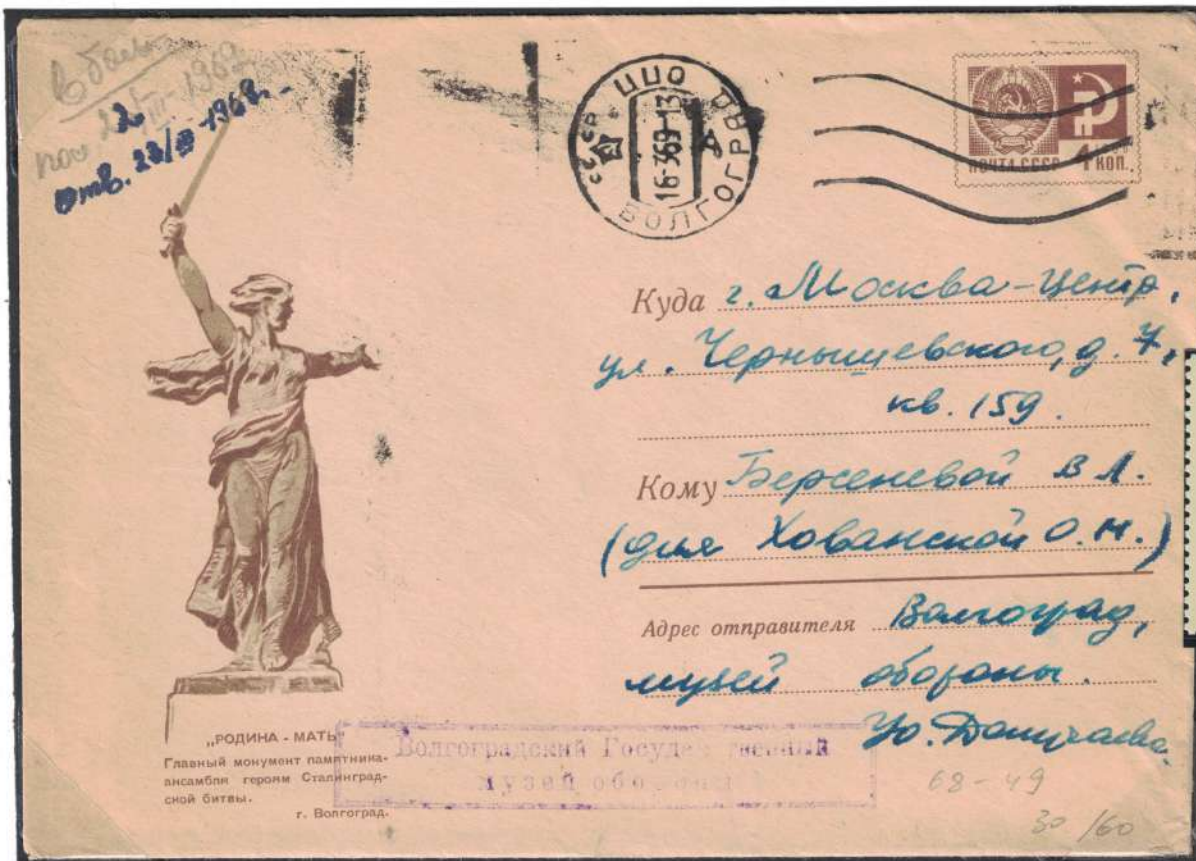 в боль
пол. 22/III-1969
отв. 23/III-1968г.
СССР ЦПО
16-369-13
ВОЛГОГРАД
ПОЧТА СССР 4 КОП.
Куда г. Москва-Центр,
ул. Чернышевского, д. 7,
кв. 159.
Кому Берсеневой В Л.
(для Хованской О.Н.)
Адрес отправителя Волгоград,
музей обороны.
„РОДИНА - МАТЬ"
Главный монумент памятника-
ансамбля героям Сталинград-
ской битвы.
г. Волгоград.
Волгоградский Государственный
музей обороны
68-49
30/60